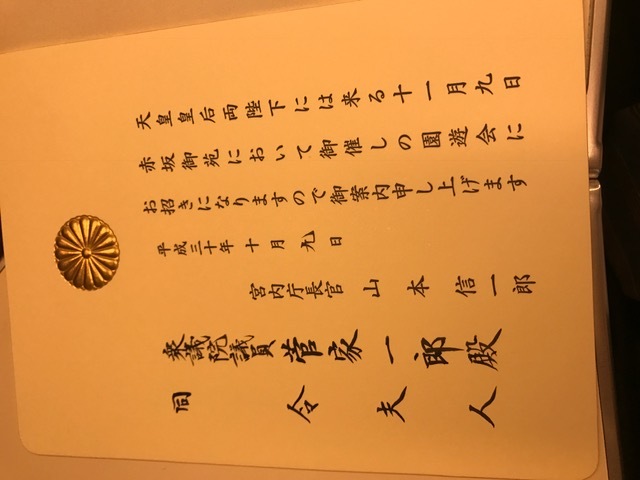 天皇皇后両陛下には来る十一月九日
赤坂御苑において御催しの園遊会に
お招きになりますので御案内申し上げます
平成三十年十月九日
宮内庁長官 山本信一郎
衆議院議員 菅家一郎殿
同 令夫人